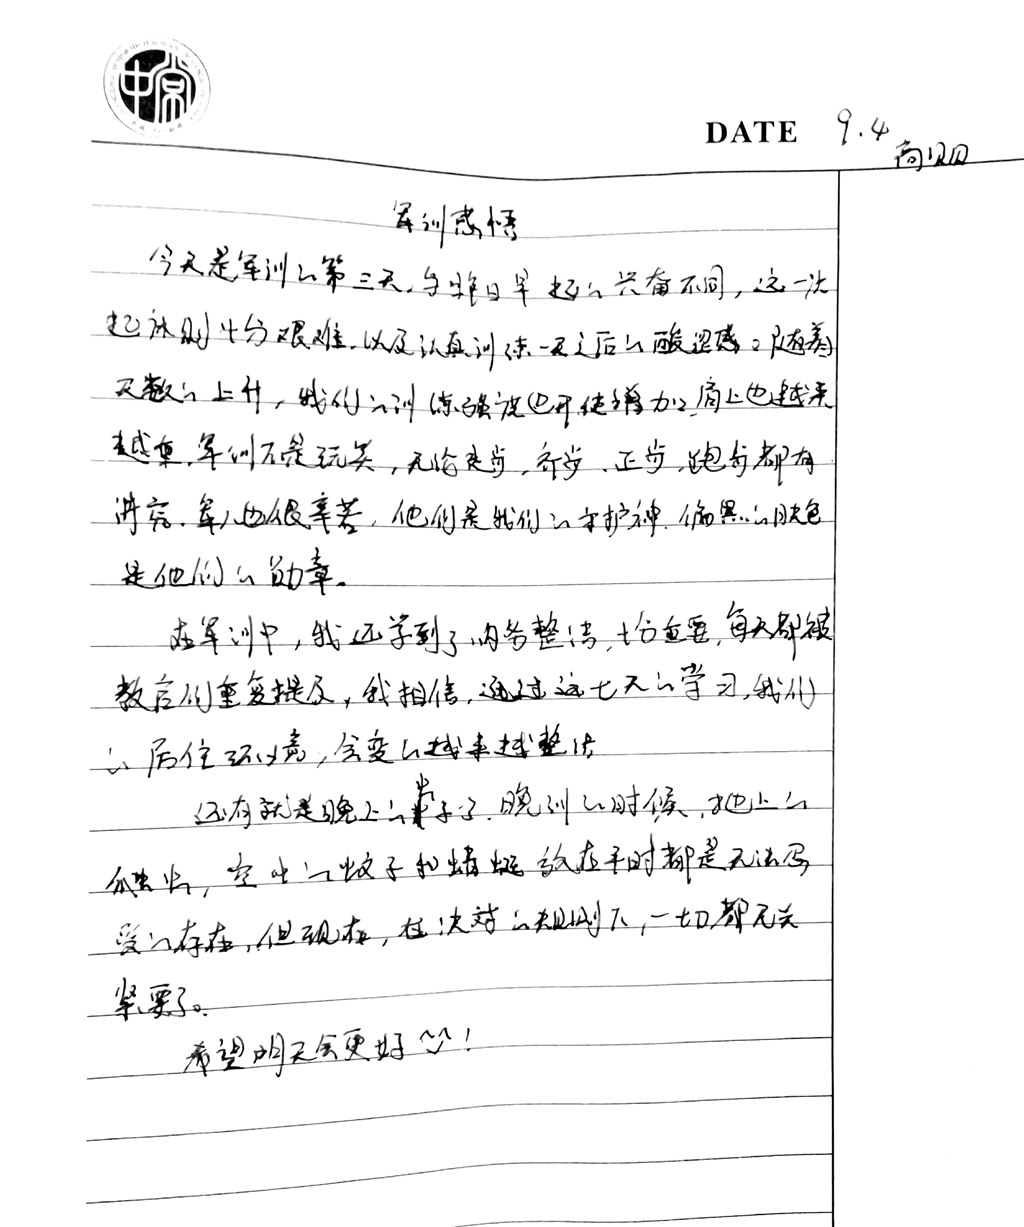 中常
DATE 9.4
高贝贝
军训感悟
今天是军训的第三天,与昨日早起的兴奋不同,这一次
起床则十分艰难,以及认真训练一天之后的酸涩感。随着
天数的上升,我们的训练强度也开使增加,肩上也越来
越重,军训不是玩笑,无论走步,齐步,正步,跑步都有
讲究,军人也很辛苦,他们是我们的守护神,偏黑的肤色
是他们的勋章。
在军训中,我还学到了内务整洁,十分重要,每天都被
教官们重复提及,我相信,通过这七天的学习,我们
的居住环境,会变的越来越整洁
还有就是晚上的 子了,晚训的时候,地上的
爬虫,空中的蚊子和蜻蜓放在平时都是无法忍
受的存在,但现在,在决对的规则下,一切都无关
紧要了。
希望明天会更好^^!